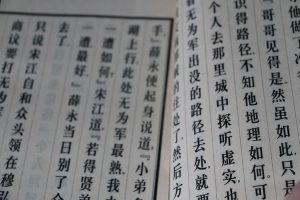 『哥哥见得是.虽然如此.只是
识得路径.不知他地理如何.可
个人去那里城中探听虚实.也
无为军出没的路径去处.就要
贼的住处了.然后方
手.』薛永便起身说道.『小弟
湖上行.此处无为军最熟.我
一遭如何.』宋江道.『若得贤弟
一遭最好.』薛永当日别了
去了.
只说宋江自和众头领在穆弘
商议要打无为